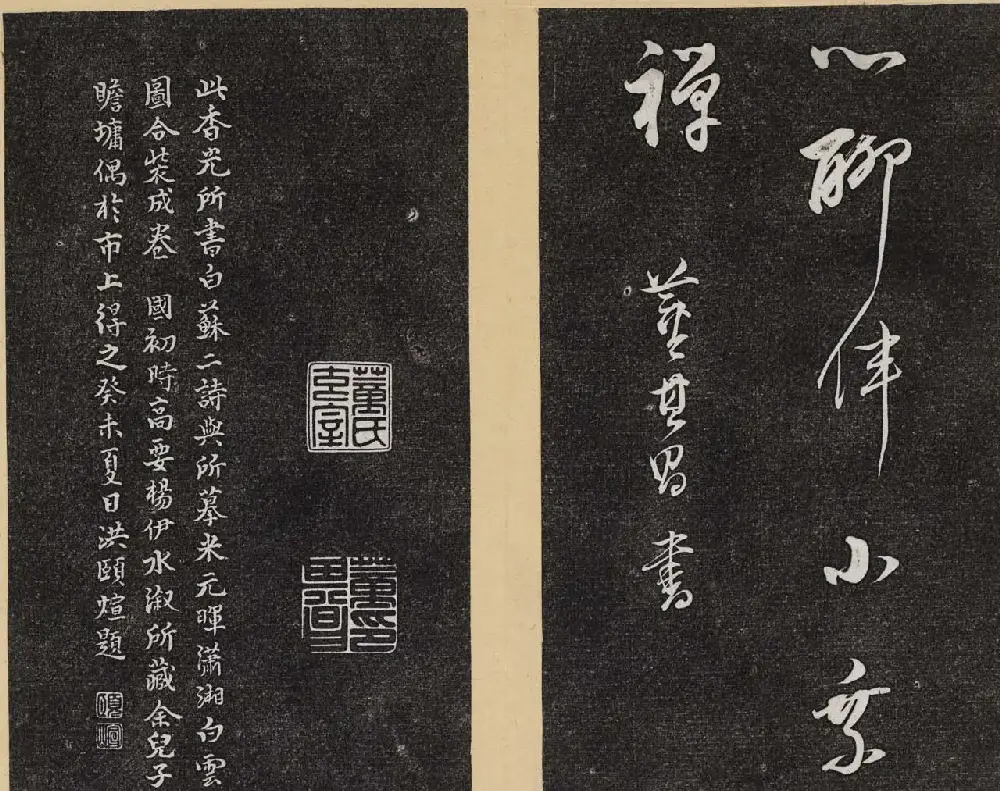 心聊伴小乘
禪 董其昌書
董氏玄宰
此香光所書白蘇二詩與所摹米元暉瀟湘白雲
圖合裝成卷 國初時高要楊伊水淑所藏余兒子
瞻墉偶於市上得之癸未夏日洪頤煊題
頤煊